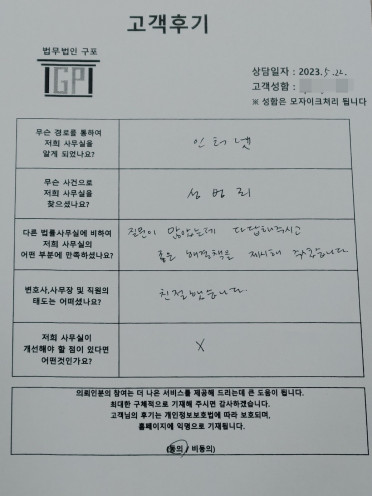 고객후기
법무법인 구포
GP
상담일자 : 2023. 5. 22.
고객성함 :
※ 성함은 모자이크처리 됩니다
무슨 경로를 통하여
저희 사무실을
알게 되었나요?
인터넷
무슨 사건으로
저희 사무실을
찾으셨나요?
성범죄
다른 법률사무실에 비하여
저희 사무실의
어떤 부분에 만족하셨나요?
질문이 많았는데 다 답해주시고
좋은 해결책을 제시해 주셨습니다
변호사,사무장 및 직원의
태도는 어떠셨나요?
친절했습니다.
저희 사무실이
개선해야 할 점이 있다면
어떤것인가요?
X
의뢰인분의 참여는 더 나은 서비스를 제공해 드리는데 큰 도움이 됩니다.
최대한 구체적으로 기재해 주시면 감사하겠습니다.
고객님의 후기는 개인정보보호법에 따라 보호되며,
홈페이지에 익명으로 기재됩니다.
(동의 / 비동의)